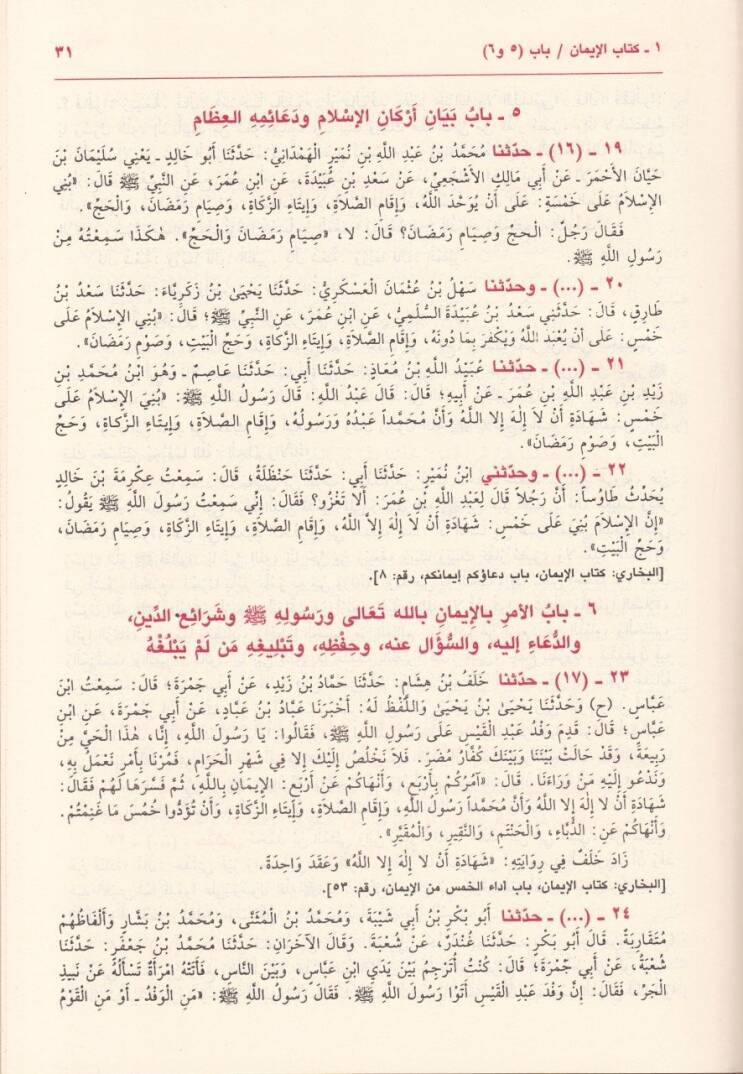 ١ - كتاب الإيمان / باب (٥ و٦)
٣١
٥ - بابُ بَيَانِ أَرْكَانِ الإِسْلَامِ ودَعَائِمِهِ العِظَامِ
١٩ - (١٦) - حدّثنا مُحَمَّدُ بْنُ عَبْدِ اللَّهِ بْنِ نُمَيْرٍ الْهَمْدَانِيُّ: حَدَّثَنَا أَبُو خَالِدٍ - يَعْنِي سُلَيْمَانَ بْنَ
حَيَّانَ الأَحْمَرَ - عَنْ أَبِي مَالِكٍ الأَشْجَعِيِّ، عَنْ سَعْدِ بْنِ عُبَيْدَةَ، عَنِ ابْنِ عُمَرَ، عَنِ النَّبِيِّ ﷺ قَالَ: «بُنِيَ
الإِسْلَامُ عَلَى خَمْسَةٍ: عَلَى أَنْ يُوَحَّدَ اللَّهُ، وَإِقَامِ الصَّلَاةِ، وَإِيتَاءِ الزَّكَاةِ، وَصِيَامِ رَمَضَانَ، وَالْحَجِّ».
فَقَالَ رَجُلٌ: الْحَجِّ وَصِيَامِ رَمَضَانَ؟ قَالَ: لا، «صِيَامِ رَمَضَانَ وَالْحَجِّ». هٰكَذَا سَمِعْتُهُ مِنْ
رَسُولِ اللَّهِ ﷺ.
٢٠ - (...) - وحدّثنا سَهْلُ بْنُ عُثْمَانَ الْعَسْكَرِيُّ: حَدَّثَنَا يَحْيَىٰ بْنُ زَكَرِيَّاءَ: حَدَّثَنَا سَعْدُ بْنُ
طَارِقٍ، قَالَ: حَدَّثَنِي سَعْدُ بْنُ عُبَيْدَةَ السُّلَمِيُّ، عَنِ ابْنِ عُمَرَ، عَنِ النَّبِيِّ ﷺ؛ قَالَ: «بُنِيَ الإِسْلَامُ عَلَى
خَمْسٍ: عَلَى أَنْ يُعْبَدَ اللَّهُ وَيُكْفَرَ بِمَا دُونَهُ، وَإِقَامِ الصَّلَاةِ، وَإِيتَاءِ الزَّكَاةِ، وَحَجِّ الْبَيْتِ، وَصَوْمِ رَمَضَانَ».
٢١ - (...) - حدّثنا عُبَيْدُ اللَّهِ بْنُ مُعَاذٍ: حَدَّثَنَا أَبِي: حَدَّثَنَا عَاصِمٌ - وَهُوَ ابْنُ مُحَمَّدِ بْنِ
زَيْدِ بْنِ عَبْدِ اللَّهِ بْنِ عُمَرَ - عَنْ أَبِيهِ؛ قَالَ: قَالَ عَبْدُ اللَّهِ: قَالَ رَسُولُ اللَّهِ ﷺ: «بُنِيَ الإِسْلَامُ عَلَى
خَمْسٍ: شَهَادَةِ أَنْ لَا إِلٰهَ إِلَّا اللَّهُ وَأَنَّ مُحَمَّداً عَبْدُهُ وَرَسُولُهُ، وَإِقَامِ الصَّلَاةِ، وَإِيتَاءِ الزَّكَاةِ، وَحَجِّ
الْبَيْتِ، وَصَوْمِ رَمَضَانَ».
٢٢ - (...) - وحدّثني ابْنُ نُمَيْرٍ: حَدَّثَنَا أَبِي: حَدَّثَنَا حَنْظَلَةُ، قَالَ: سَمِعْتُ عِكْرِمَةَ بْنَ خَالِدٍ
يُحَدِّثُ طَاوُساً: أَنَّ رَجُلاً قَالَ لِعَبْدِ اللَّهِ بْنِ عُمَرَ: أَلَا تَغْزُو؟ فَقَالَ: إِنِّي سَمِعْتُ رَسُولَ اللَّهِ ﷺ يَقُولُ:
«إِنَّ الإِسْلَامَ بُنِيَ عَلَى خَمْسٍ: شَهَادَةِ أَنْ لَا إِلٰهَ إِلَّا اللَّهُ، وَإِقَامِ الصَّلَاةِ، وَإِيتَاءِ الزَّكَاةِ، وَصِيَامِ رَمَضَانَ،
وَحَجِّ الْبَيْتِ».
[البخاري: كتاب الإيمان، باب دعاؤكم إيمانكم، رقم: ٨].
٦ - بابُ الأمرِ بالإيمَانِ بالله تَعَالى ورَسُولِهِ ﷺ وشَرَائِعِ الدِّينِ،
والدُّعَاءِ إليه، والسُّؤَالِ عنه، وحِفْظِهِ، وتَبْلِيغِهِ مَن لَمْ يَبْلُغْهُ
٢٣ - (١٧) - حدّثنا خَلَفُ بْنُ هِشَامٍ: حَدَّثَنَا حَمَّادُ بْنُ زَيْدٍ، عَنْ أَبِي جَمْرَةَ؛ قَالَ: سَمِعْتُ ابْنَ
عَبَّاسٍ. (ح) وَحَدَّثَنَا يَحْيَىٰ بْنُ يَحْيَىٰ وَاللَّفْظُ لَهُ: أَخْبَرَنَا عَبَّادُ بْنُ عَبَّادٍ، عَنْ أَبِي جَمْرَةَ، عَنِ ابْنِ
عَبَّاسٍ؛ قَالَ: قَدِمَ وَفْدُ عَبْدِ الْقَيْسِ عَلَى رَسُولِ اللَّهِ ﷺ، فَقَالُوا: يَا رَسُولَ اللَّهِ، إِنَّا، هٰذَا الْحَيَّ مِنْ
رَبِيعَةَ، وَقَدْ حَالَتْ بَيْنَنَا وَبَيْنَكَ كُفَّارُ مُضَرَ. فَلَا نَخْلُصُ إِلَيْكَ إِلَّا فِي شَهْرِ الْحَرَامِ، فَمُرْنَا بِأَمْرٍ نَعْمَلُ بِهِ،
وَنَدْعُو إِلَيْهِ مَنْ وَرَاءَنَا. قَالَ: «آمُرُكُمْ بِأَرْبَعٍ، وَأَنْهَاكُمْ عَنْ أَرْبَعٍ: الإِيمَانِ بِاللَّهِ، ثُمَّ فَسَّرَهَا لَهُمْ فَقَالَ:
شَهَادَةِ أَنْ لَا إِلٰهَ إِلَّا اللَّهُ وَأَنَّ مُحَمَّداً رَسُولُ اللَّهِ، وَإِقَامِ الصَّلَاةِ، وَإِيتَاءِ الزَّكَاةِ، وَأَنْ تُؤَدُّوا خُمُسَ مَا غَنِمْتُمْ.
وَأَنْهَاكُمْ عَنِ: الدُّبَّاءِ، وَالْحَنْتَمِ، وَالنَّقِيرِ، وَالْمُقَيَّرِ».
زَادَ خَلَفٌ فِي رِوَايَتِهِ: «شَهَادَةِ أَنْ لَا إِلٰهَ إِلَّا اللَّهُ» وَعَقَدَ وَاحِدَةً.
[البخاري: كتاب الإيمان، باب أداء الخمس من الإيمان، رقم: ٥٣].
٢٤ - (...) - حدّثنا أَبُو بَكْرِ بْنُ أَبِي شَيْبَةَ، وَمُحَمَّدُ بْنُ الْمُثَنَّى، وَمُحَمَّدُ بْنُ بَشَّارٍ وَأَلْفَاظُهُمْ
مُتَقَارِبَةٌ. قَالَ أَبُو بَكْرٍ: حَدَّثَنَا غُنْدَرٌ، عَنْ شُعْبَةَ. وَقَالَ الآخَرَانِ: حَدَّثَنَا مُحَمَّدُ بْنُ جَعْفَرٍ: حَدَّثَنَا
شُعْبَةُ، عَنْ أَبِي جَمْرَةَ؛ قَالَ: كُنْتُ أُتَرْجِمُ بَيْنَ يَدَيِ ابْنِ عَبَّاسٍ، وَبَيْنَ النَّاسِ، فَأَتَتْهُ امْرَأَةٌ تَسْأَلُهُ عَنْ نَبِيذِ
الْجَرِّ، فَقَالَ: إِنَّ وَفْدَ عَبْدِ الْقَيْسِ أَتَوْا رَسُولَ اللَّهِ ﷺ. فَقَالَ رَسُولُ اللَّهِ ﷺ: «مَنِ الْوَفْدُ - أَوْ مَنِ الْقَوْمُ